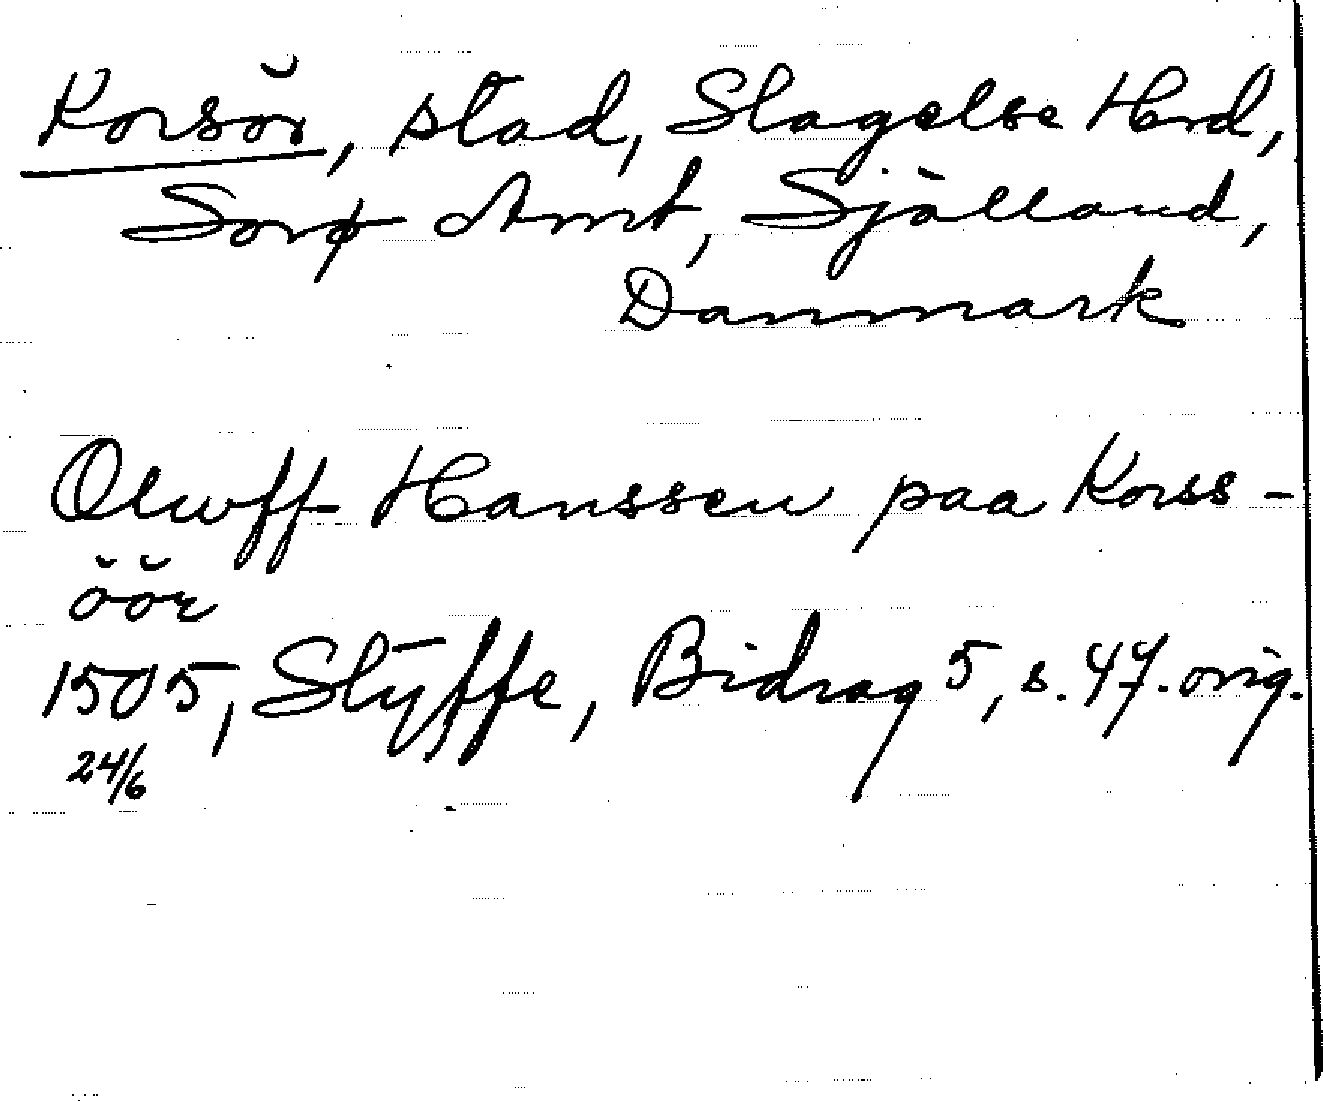 Korsör, stad, Slagelse Hrd,
Sorø Amt, Själland,
Danmark
Oluff Hanssen paa Korss-
öör
1505, Styffe, Bidrag 5, s. 47. orig.
24/6